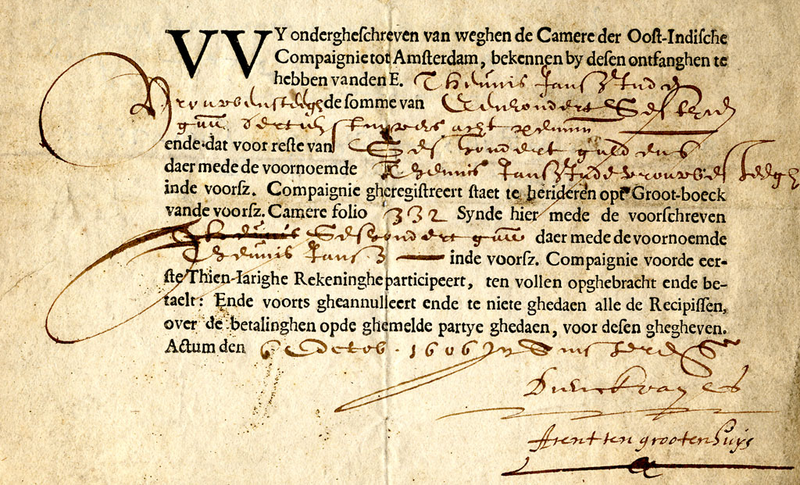 VVY ondergheschreven van weghen de Camere der Oost-Indische
Compaignie tot Amsterdam, bekennen by desen ontfanghen te
hebben vanden E. Theunis Jansz Inde
Vrouwensteegh de somme van Eenhondert Sestich
gul dertich stuyvers acht penni
ende dat voor reste van Ses hondert guldens
daer mede de voornoemde Theunis Jansz Inde vrouwesteegh
inde voorsz. Compaignie gheregistreert staet te herideren opt Groot-boeck
vande voorsz. Camere folio 332 Synde hier mede de voorschreven
Seshondert daer mede de voornoemde
Theunis Jansz inde voorsz. Compaignie voorde eer-
ste Thien-Iarighe Rekeninghe participeert, ten vollen opghebracht ende be-
taelt: Ende voorts gheannulleert ende te niete ghedaen alle de Recipissen,
over de betalinghen opde ghemelde partye ghedaen, voor desen ghegheven.
Actum den 6 Octob. 1606 In Amsterd
Arent ten grootenhuijs